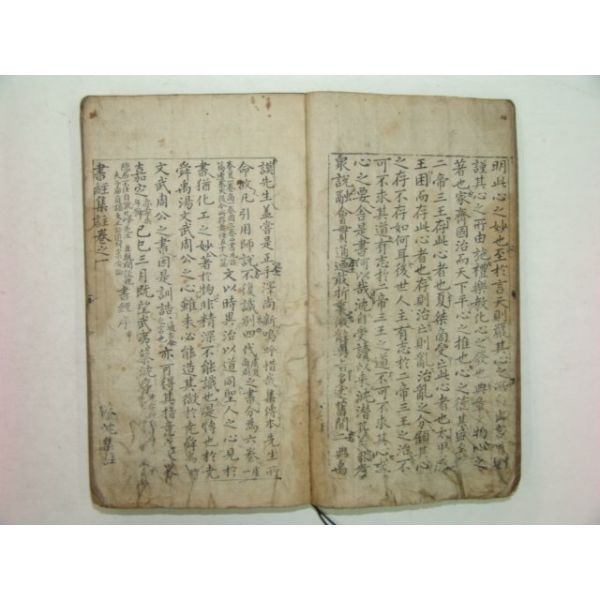 明此心之妙也至於言天則嚴其心之所自出言民則
謹其心之所由施禮樂教化心之發也典章文物心之
著也家齊國治而天下平心之推也心之德其盛矣乎
二帝三王存此心者也夏桀商受亡此心者也太甲成
王困而存此心者也存則治亡則亂治亂之分顧其心
之存不存如何耳後世人主有志於二帝三王之治不
可不求其道有志於二帝三王之道不可不求其心求
心之要舍是書何以哉沈自受讀以來沈潛其義參考
衆說融會貫通廼敢折衷微辭奧旨多述舊聞二典禹
謨先生盖嘗是正手澤尚新嗚呼惜哉集傳本先生所
命故凡引用師說不復識別四代之書分為六卷
文以時異治以道同聖人之心見於
書猶化工之妙著於物非精深不能識也是傳也於堯
舜禹湯文武周公之心雖未必能造其微於堯舜禹湯
文武周公之書因是訓詁亦可得其指意之大畧
嘉定己巳三月既望武夷蔡沈序
書經序
書經集註卷之一
蔡沈集註